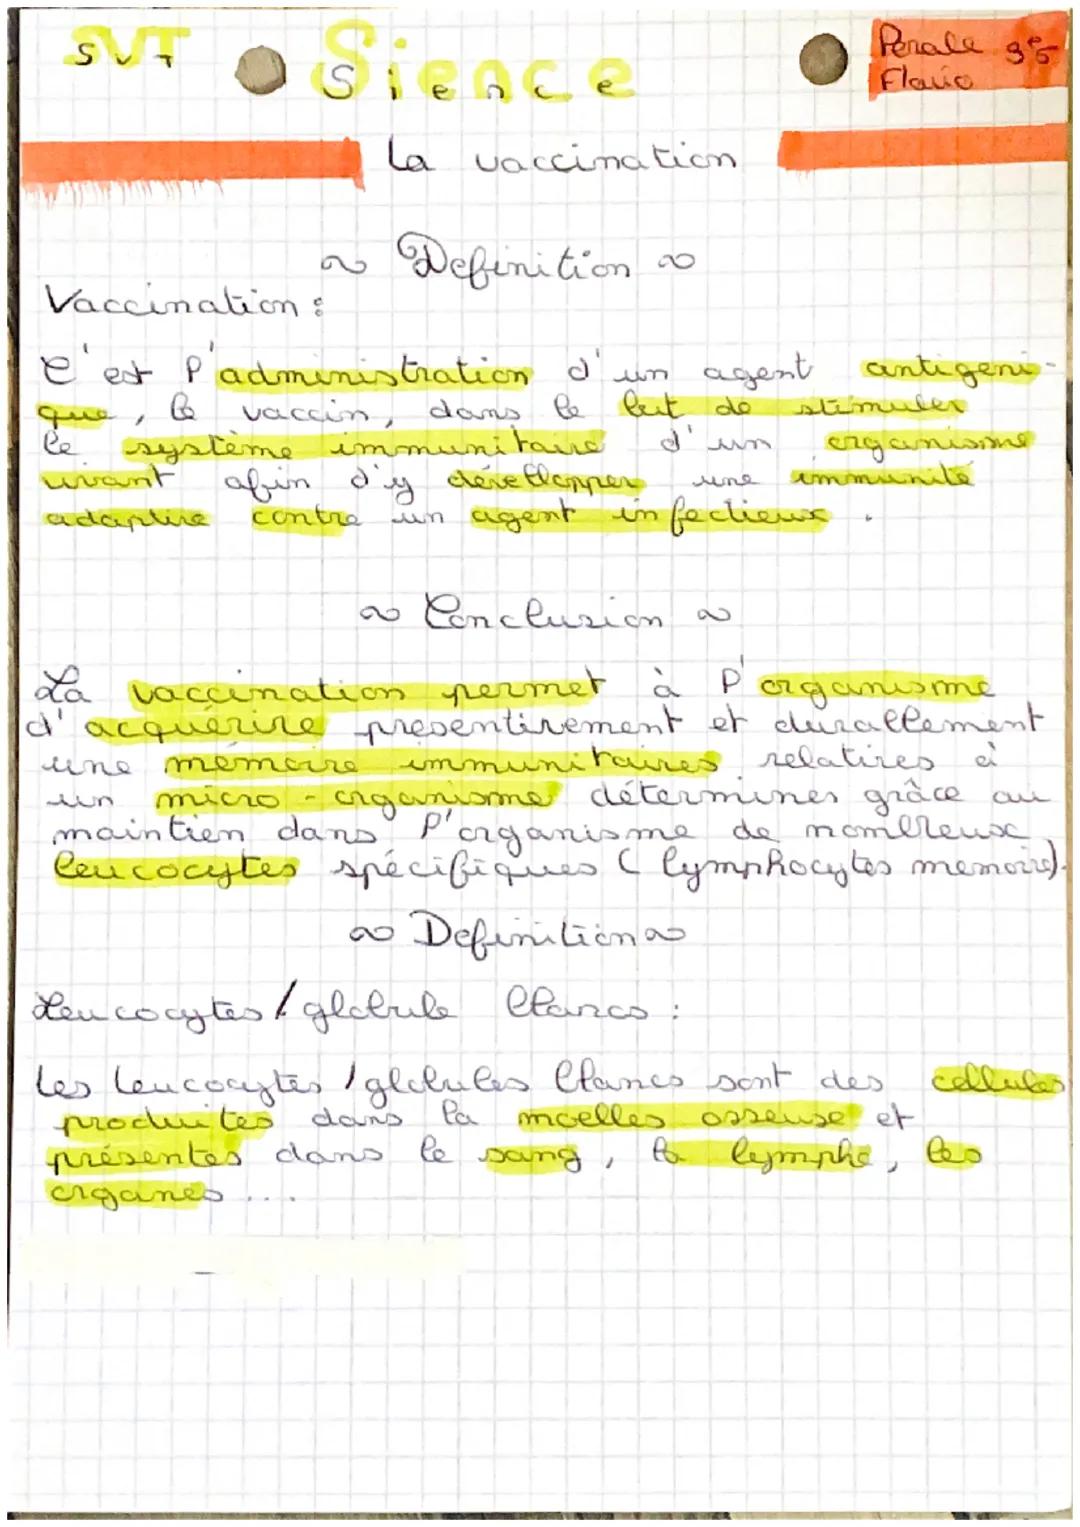 SVT Sience Perale 3e5
Flavio
La vaccination
~ Definition ~
Vaccination :
C'est l'administration d'un agent antigeni-
que, le vaccin, dans le but de stimuler
le système immunitaire d'un organisme
vivant afin d'y développer une immunité
adaptive contre un agent infectieux.
~ Conclusion ~
La vaccination permet à l'organisme
d'acquérire presentivement et durablement
une mémoire immunitaires relatives à
un micro-organisme déterminer grâce au
maintien dans l'organisme de nombreux
leucocytes spécifiques (lymphocytes memoire).
~ Definition ~
Leucocytes / globule blancs :
Les leucocytes / globules blancs sont des cellules
produites dans la moelles osseuse et
présentes dans le sang, la lymphe, les
organes ....